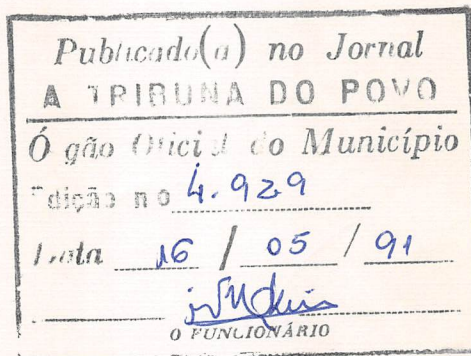 Publicado(a) no Jornal
A TRIBUNA DO POVO
Órgão Oficial do Município
Edição no 4.929
Data 16 / 05 / 91
O FUNCIONÁRIO